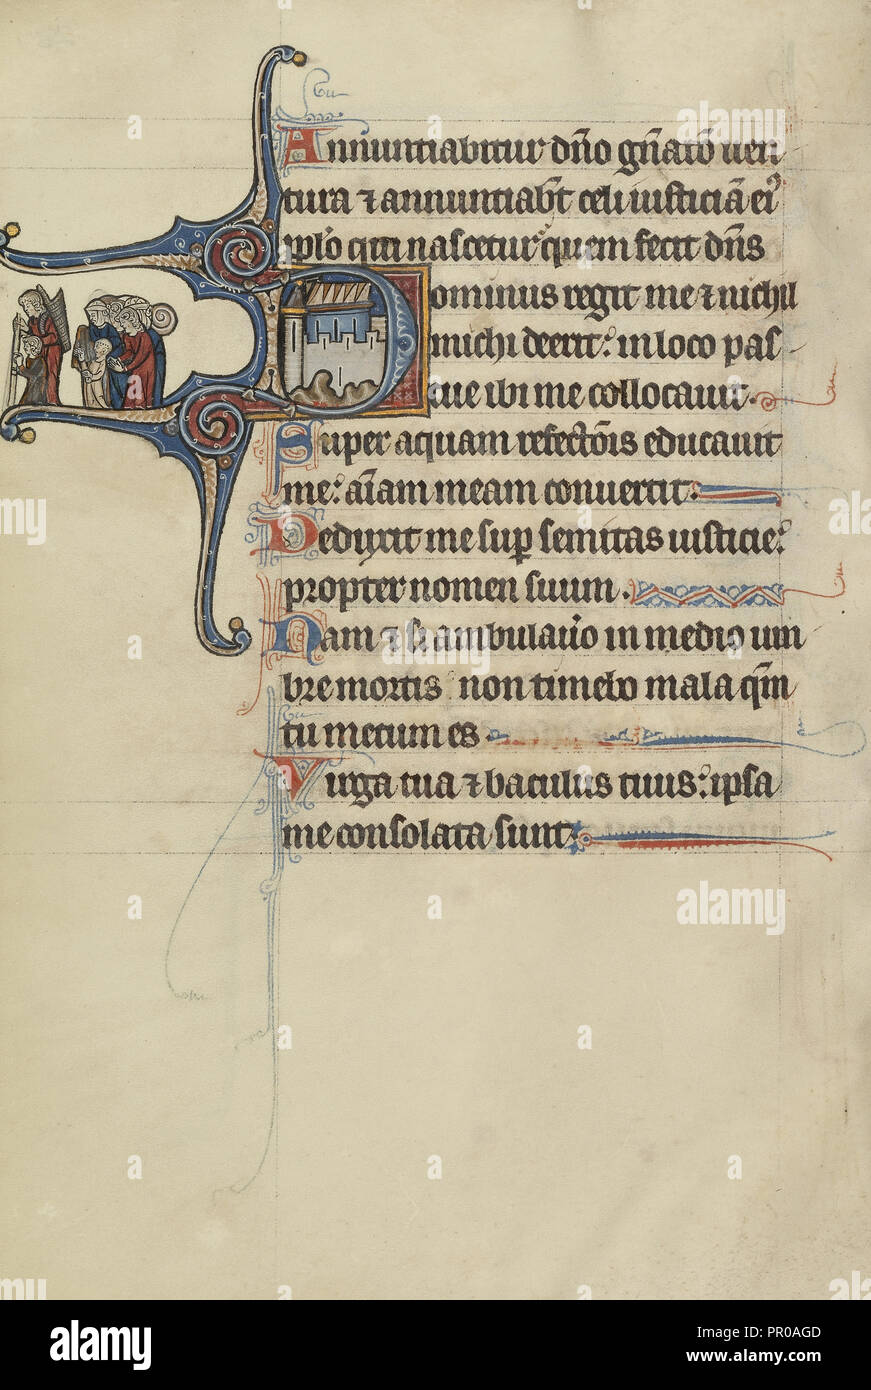 Annuntiabitur dn̄o gn̄atō uen
tura ⁊ annuntiab̄t celi iusticiā eiꝰ
ip̄lo qui nascetur quem fecit dn̄s
Dominus regit me ⁊ nichil
michi deerit: in loco pas-
cue ibi me collocauit.
Super aquam refectōis educauit
me: aīam meam conuertit:
Deduxit me sup̱ semitas iusticie:
propter nomen suum.
Nam ⁊ si ambulau̇o in medio um
bre mortis non timebo mala qm̄
tu mecum es.
Virga tua ⁊ baculus tuus: ipsa
me consolata sunt:
alamy
Image ID: PR0AGD
www.alamy.com